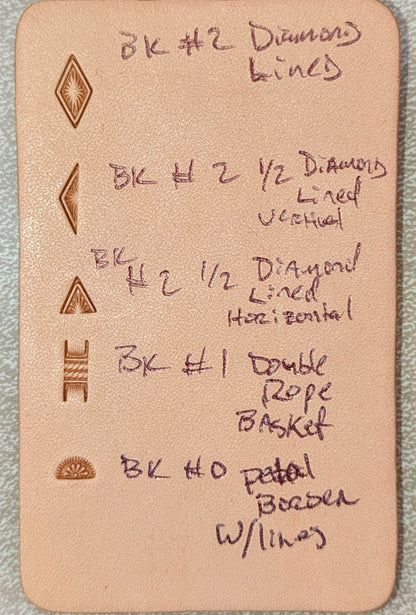 BK #2 Diamond
Lined
BK # 2 1/2 Diamond
Lined
Vertical
BK
#2 1/2 Diamond
Lined
Horizontal
BK #1 Double
Rope
Basket
BK #0 petal
Border
W/lines